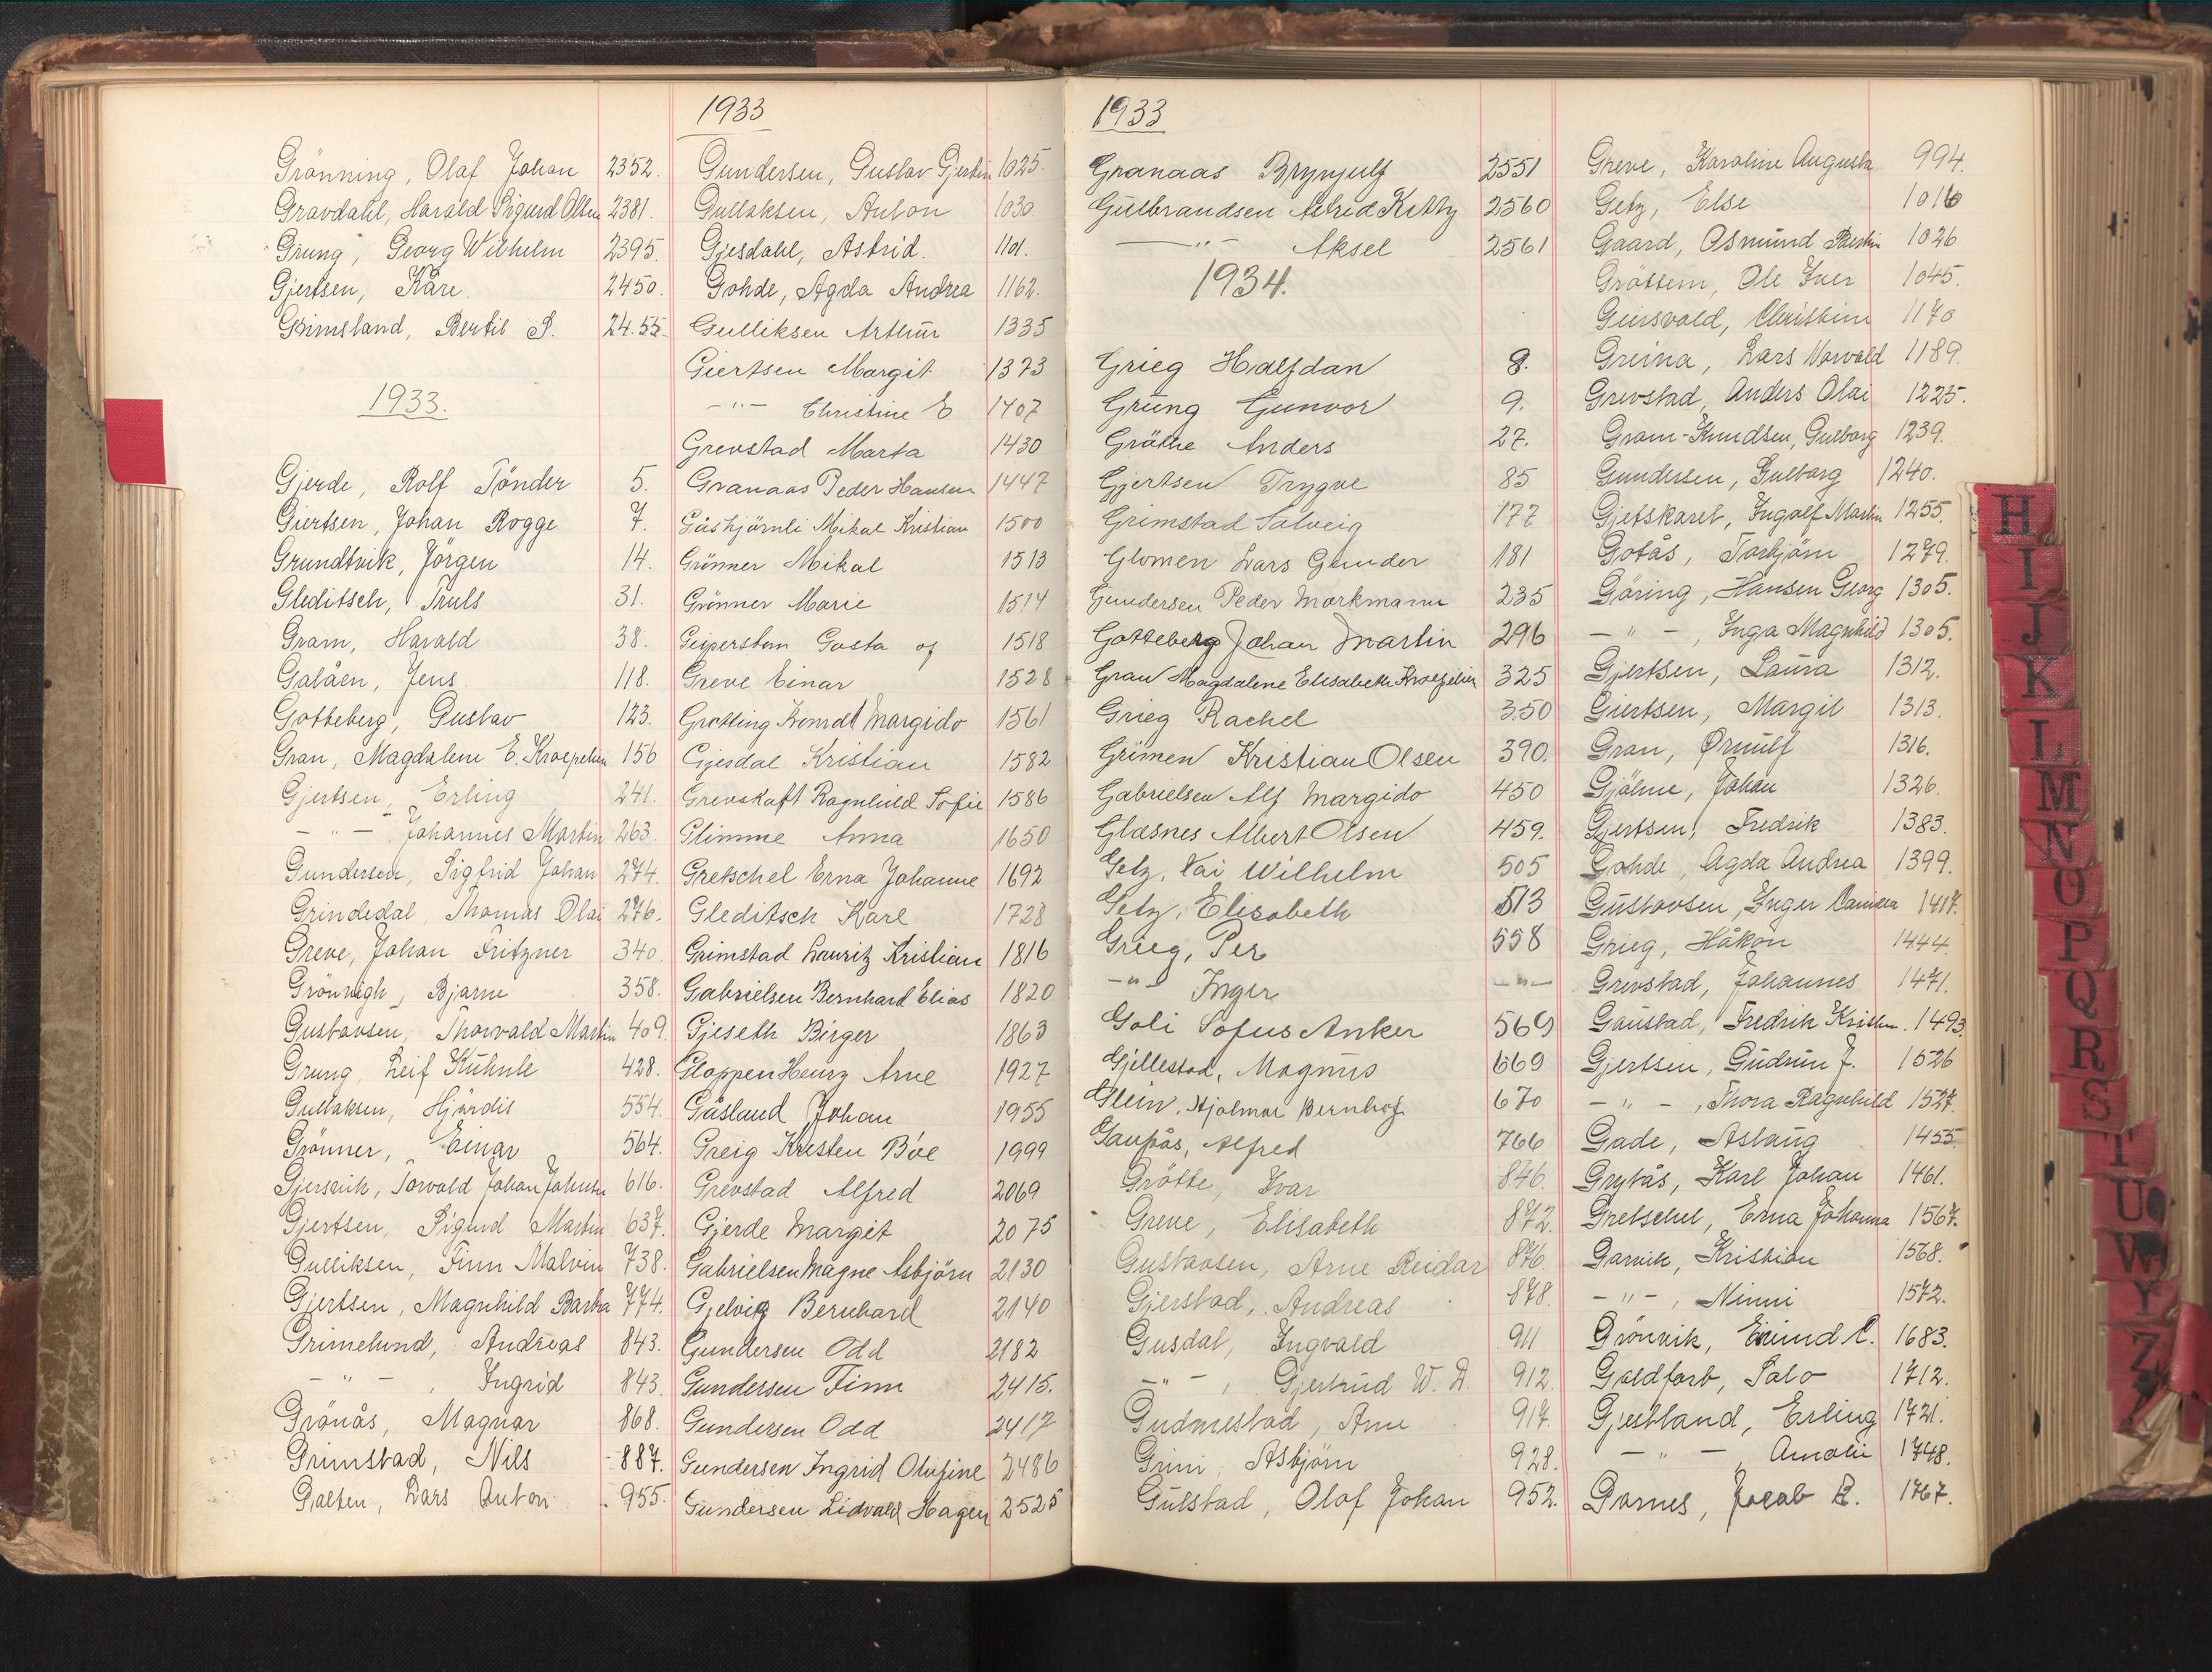 Grönning, Olaf Johan 2352.
Gravdahl, Harald Sigurd Olsen 2381.
Grung, Georg Wilhelm 2395.
Gjertsen, Kåre. 2450.
Grimsland, Bertil S. 24.55.
1933.
Gjerde, Rolf Tönder 5.
Giertsen, Johan Rogge 7.
Grundtvik, Jörgen 14.
Gleditsch, Truls 31.
Gram, Harald 38.
Galåen, Jens. 118.
Gotteberg, Gustav 123.
Gran, Magdalene E. Kroepelien 156
Gjertsen, Erling 241.
— " — Johannes Martin 263.
Gundersen, Sigfrid Johan 274.
Grindedal, Thomas Olai 276.
Greve, Johan Fritzner 340.
Grönnigh, Bjarne 358.
Gustavsen, Thorvald Martin 409.
Grung, Leif Kuhnle 428.
Gullaksen, Hjördis 554.
Grönner, Einar 564.
Torvald Johan 616.
Gjertsen, Sigurd Martin 637.
Gulliksen, Finn Malvin 738.
Gjertsen, Magnhild Barbra 774.
Grimelund, Andreas 843.
— " — , Ingrid 843.
Grönås, Magnar 868.
Grimstad, Nils 887.
Galten, Lars Anton 955.
1933
Gundersen, Gustav Gjertin 1025.
Gullaksen, Anton 1030.
Gjesdahl, Astrid. 1101.
Gohde, Agda Andrea 1162.
Gulliksen Arthur 1335
Giertsen Margit 1373
— " — Christine E 1407
Grevstad Marta 1430
Granaas Peder Hansen 1447
Gåshjörnli Mikal Kristian 1500
Grönner Mikal 1513
Grönner Marie 1514
Geijerstam Gösta af 1518
Greve Einar 1528
Grotting Margido 1561
Gjesdal Kristian 1582
Grevskaft Ragnhild Sofie 1586
Glimme Anna 1650
Gretschel Erna Johanne 1692
Gleditsch Karl 1728
Grimstad Lauritz Kristian 1816
Gabrielsen Bernhard Elias 1820
Gjeseth Birger 1863
Gloppen Henry Arne 1927
Gåsland Johan 1955
Greig Kristen Böe 1999
Grevstad Alfred 2069
Gjerde Margit 2075
Gabrielsen Magne Asbjörn 2130
Gjelvik Bernhard 2140
Gundersen Odd 2182
Gundersen Finn 2415.
Gundersen Odd 2417
Gundersen Ingrid Olufine 2486
Gundersen Lidvald Hagen 2525
1933
Granaas Brynjulf 2551
Gulbrandsen Astrid Kitty 2560
— " — Aksel 2561
1934.
Grieg Halfdan 8.
Grung Gunvor 9.
Gräthe Anders 27.
Gjertsen Trygve 85
Grimstad Solveig 177
Glomen Lars Gunder 181
Gundersen Peder Markmann 235
Gotteberg Johan Martin 296
Gran Magdalene Elisabeth Kroepelien 325
Grieg Rachel 350
Grimen Kristian Olsen 390.
Gabrielsen Alf Margido 450
Glæsnes Albert Olsen 459.
Getz, Kai Wilhelm 505
Getz, Elisabeth 513
Grieg, Per 558
— " — Inger — " —
Goli Sofus Anker 569
Gjellestad, Magnus 669
Glein, Hjalmar Bernhof 670
Gaupås, Alfred 766
Grötte, Ivar 846.
Greve, Elisabeth 872.
Gustavsen, Arne Reidar 876.
Gjerstad, Andreas 878.
Gusdal, Ingvald 911
— " — , Gjertrud W. D. 912.
Gudmestad, Arne 917.
Grini, Asbjörn 928.
Gulstad, Olaf Johan 952.
Greve, Karoline Augusta 994.
Getz, Else 1016
Gaard, Osmund 1026
Gröttem, Ole Iver 1045.
Geirsvold, Christine 1170
Greina, Lars Norvald 1189.
Grevstad, Anders Olai 1225.
Gram-Knudsen, Gulborg 1239.
Gundersen, Gulborg 1240.
Gjetskaret, Ingolf Martin 1255.
Gotås, Torbjörn 1279.
Göring, Hansen Georg 1305.
— " — , Inga Magnhild 1305.
Gjertsen, Laura 1312.
Giertsen, Margit 1313.
Gran, Ørnulf 1316.
Gjölme, Johan 1326.
Gjertsen, Fredrik 1383.
Gohde, Agda Andrea 1399.
Gustavsen, Inger Camilla 1417.
Grieg, Håkon 1444.
Grevstad, Johannes 1471.
Gaustad, Fredrik Kristen. 1493.
Gjertsen, Gudrun J. 1526
— " — , Thora Ragnhild 1527.
Gade, Aslaug 1455
Grytås, Karl Johan 1461.
Gretschel, Erna Johanna 1567.
Garvik, Kristian 1568.
— " — , Ninni 1572.
Grönvik, Eivind C. 1683.
Goldfarb, Salo 1712.
Gjestland, Erling 1721.
— " — , Amalie 1748.
Garnes, Jacob R. 1767.
H
I
J
K
L
M
N
O
P
Q
R
S
T
U
W
Y
Z